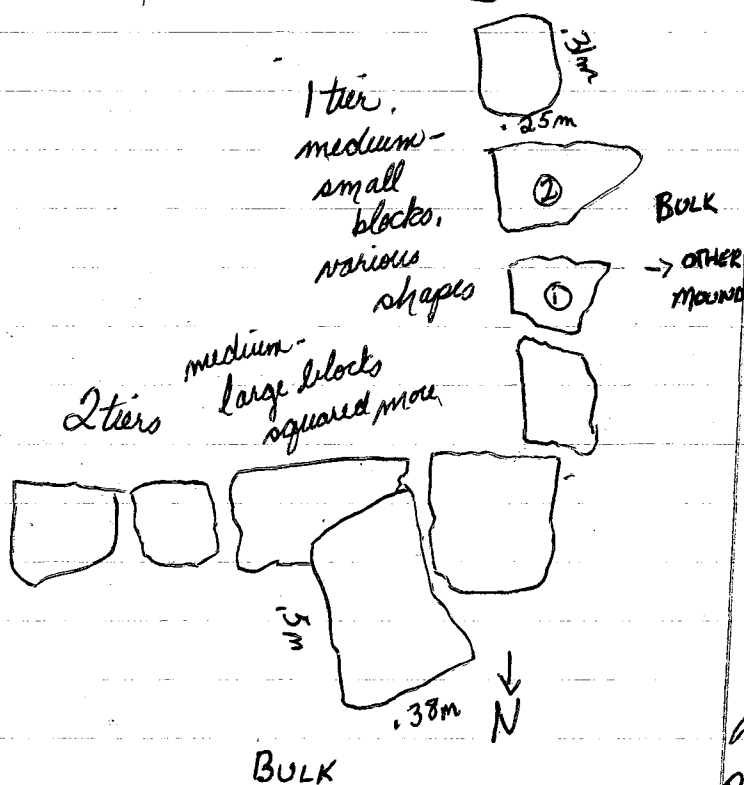 .31m
1 tier.
medium-
small
blocks,
various
shapes
.25m
②
BULK
①
→ OTHER
MOUND
2 tiers
medium-
large blocks
squared more
.5m
.38m
N
BULK